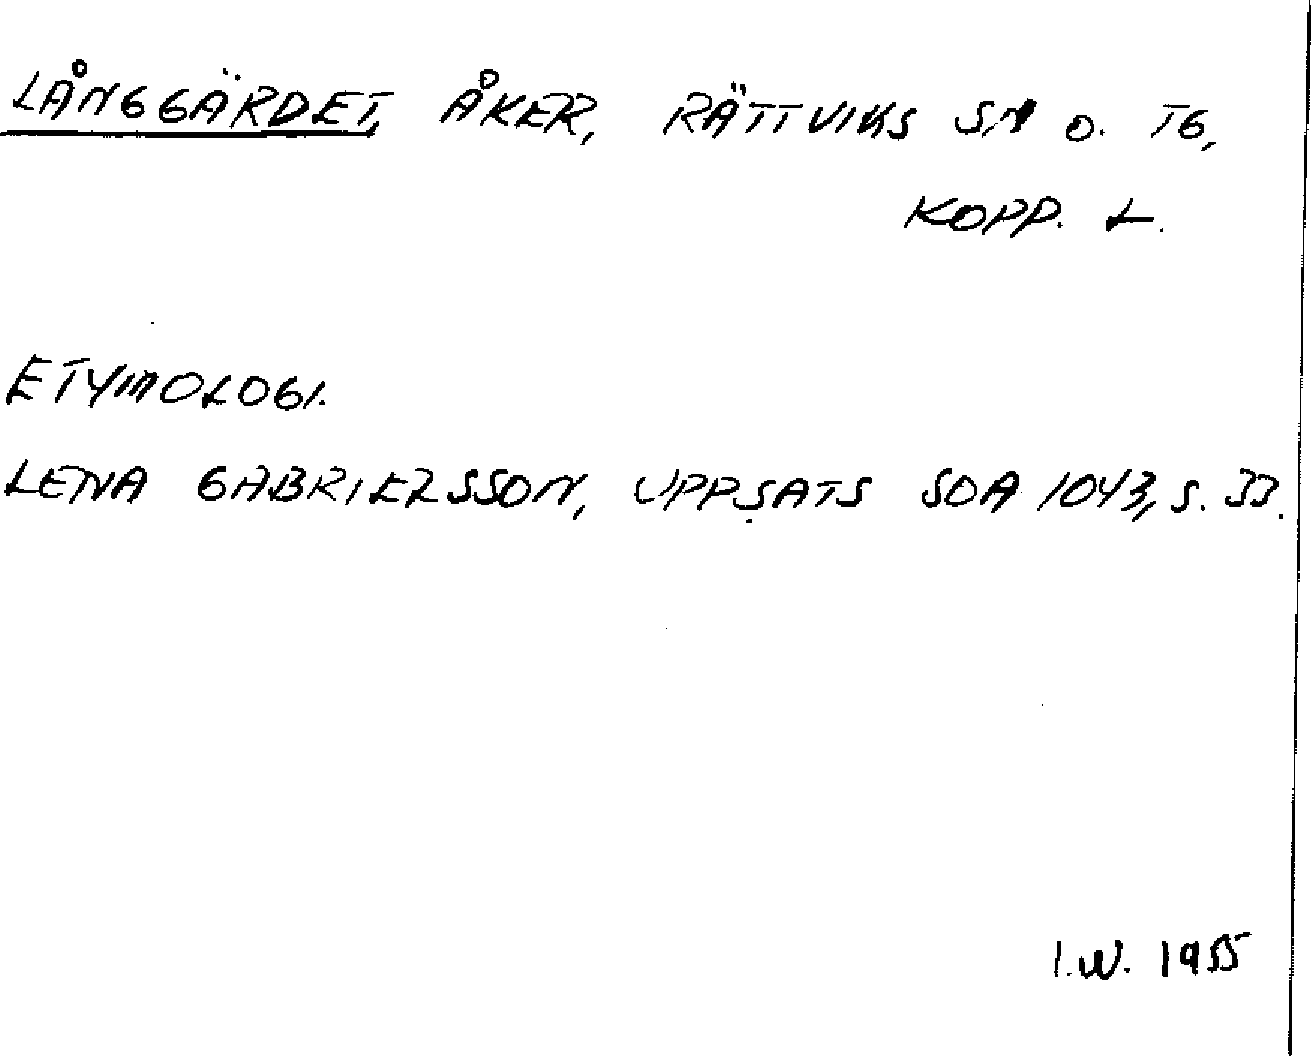 LÅNGGÄRDET, ÅKER, RÄTTVIKS SN O. TG,
KOPP. L.
ETYMOLOGI.
LENA GABRIELSSON, UPPSATS SOA 1043, S. 33.
I.W. 1955